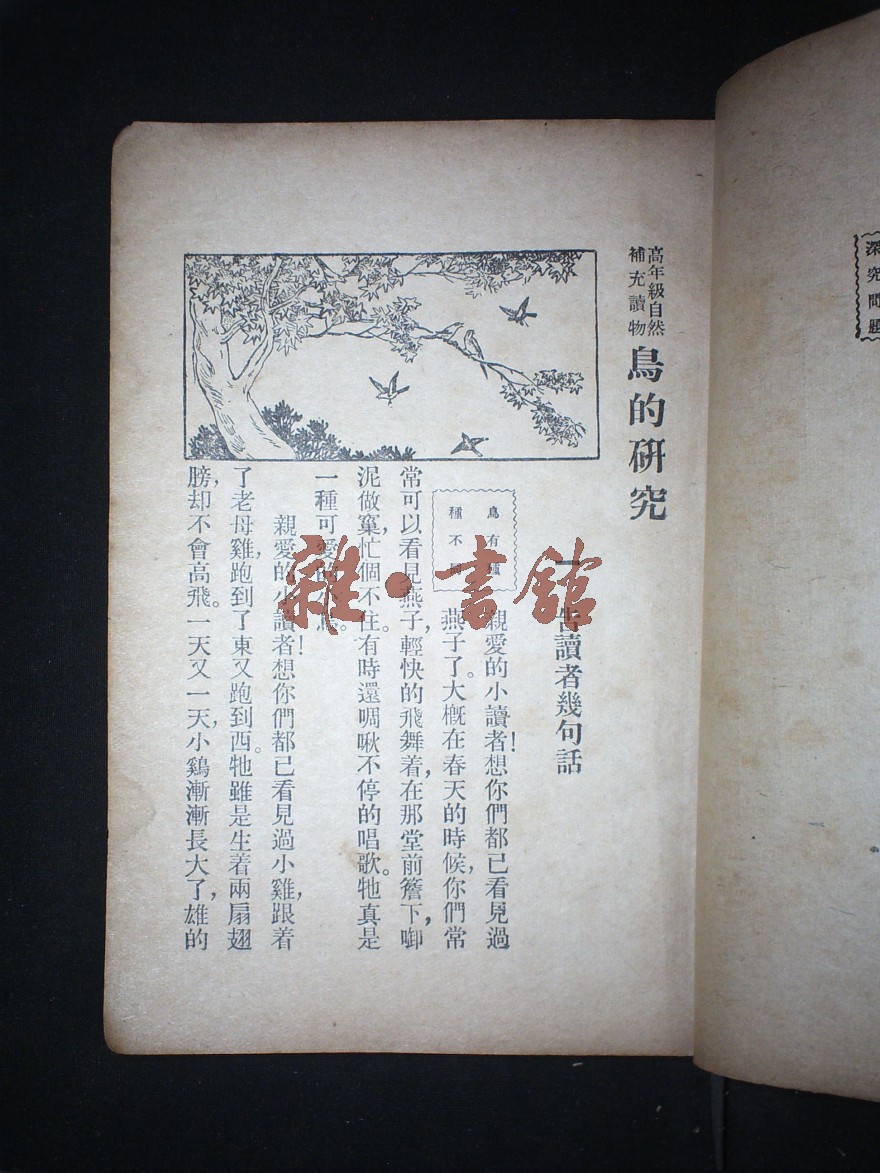 深究問題
高年級自然
補充讀物
鳥的研究
一 告讀者幾句話
鳥有種
種不同
親愛的小讀者!想你們都已看見過
燕子了。大概在春天的時候,你們常
常可以看見燕子,輕快的飛舞着,在那堂前簷下,啣
泥做窠,忙個不住。有時還啁啾不停的唱歌。牠真是
一種可愛的小鳥。
親愛的小讀者!想你們都已看見過小雞,跟着
了老母雞,跑到了東又跑到西。牠雖是生着兩扇翅
膀,却不會高飛。一天又一天,小鷄漸漸長大了,雄的
雜·書館